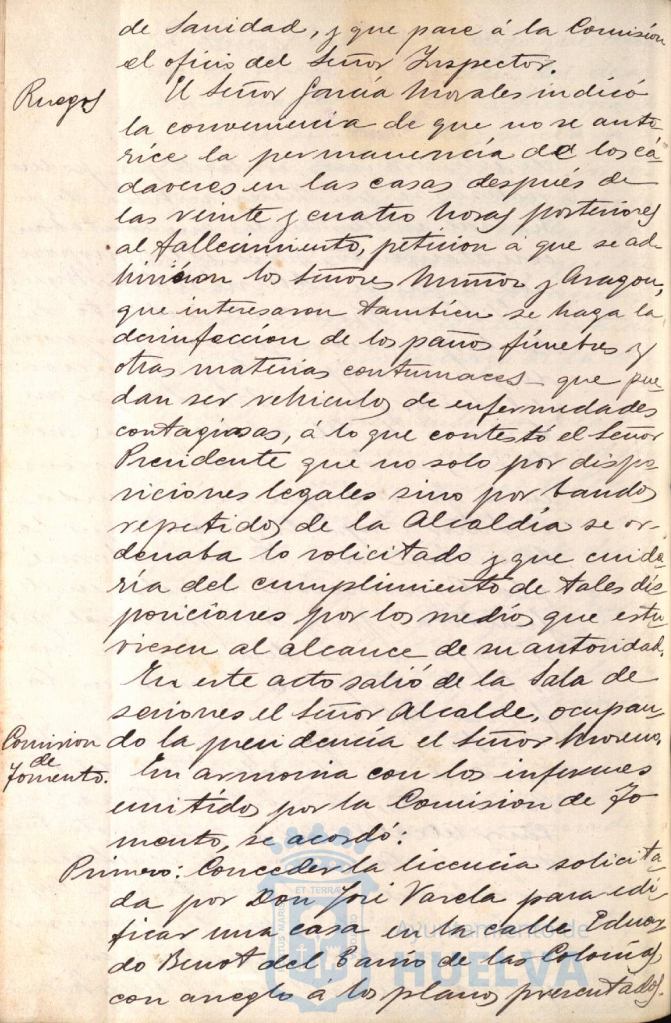 de Sanidad, y que pase á la Comisión
el oficio del Señor Inspector.
Ruegos
El Señor García Morales indicó
la conveniencia de que no se auto
rice la permanencia de los cá-
dáveres en las casas después de
las veinte y cuatro horas posteriores
al fallecimiento, peticion á que se ad
hirieron los Señores Muñoz y Aragon,
que interesaron tambien se haga la
desinfeccion de los paños fúnebres y
otras materias contumaces que pue-
dan ser vehiculos de enfermedades
contagiosas, á lo que contestó el Señor
Presidente que no solo por dispo
siciones legales sino por bandos
repetidos de la Alcaldía se or-
denaba lo solicitado y que cuida-
ría del cumplimiento de tales dis-
posiciones por los medios que estu-
viesen al alcance de su autoridad.
En este acto salió de la Sala de
sesiones el Señor Alcalde, ocupan-
do la presidencia el Señor Moreno.
Comision
de
Fomento.
En armonia con los informes
emitidos por la Comision de Fo
mento, se acordó:
Primero: Conceder la licencia solicita-
da por Don José Varela para edi-
ficar una casa en la calle Eduar
do Benot del Barrio de las Colonias
con arreglo á los planos presentados.
ET TERRAE
Ayuntamiento de
HUELVA